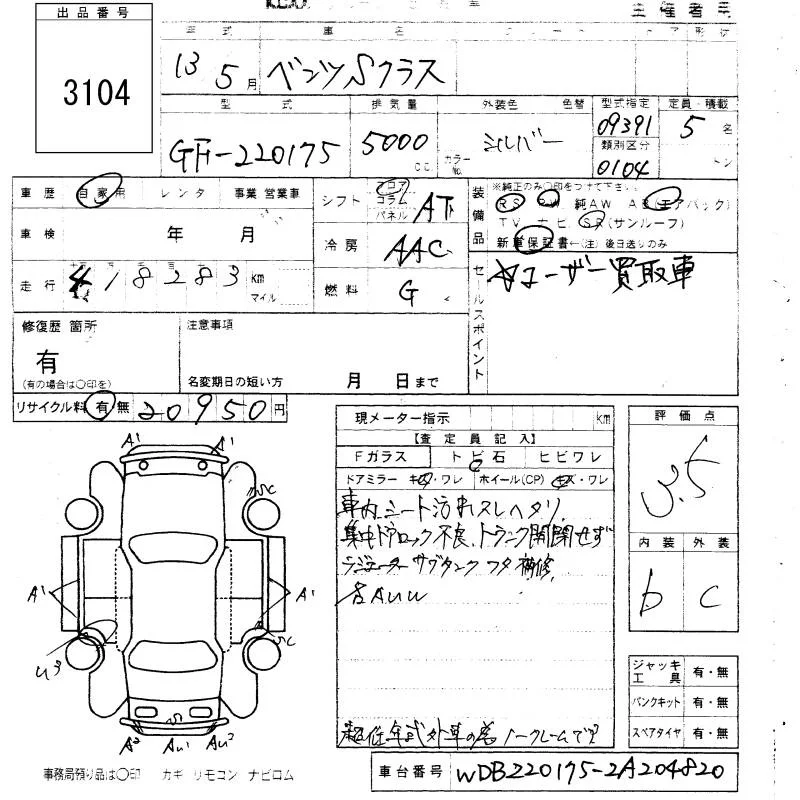 出品番号
3104
主催者号
年式 車名 グレード ドア 形状
13 5月 ベンツSクラス
型式 排気量 外装色 色替 型式指定 定員・積載
GF-220175 5000 CC. シルバー カラーNo. 09391 5 名
類別区分
0104 トン
車歴 自家用 レンタ 事業 営業車
車検 年 月
走行 418283 km マイル
シフト フロア コラム パネル AT
冷房 AAC
燃料 G
装備品
※純正のみ〇印をつけて下さい。
PS PW 純AW AB(エアバック)
TV ナビ SR(サンルーフ)
新車保証書←(注) 後日送りのみ
セールスポイント
☆ユーザー買取車
修復歴 箇所
有
(有の場合は〇印を)
注意事項
名変期日の短い方 月 日まで
リサイクル料 有 無 20950円
現メーター指示 km
【査定員記入】
Fガラス トビ石 ヒビワレ
ドアミラー キズ・ワレ ホイール(CP) キズ・ワレ
車内シート汚れスレヘタリ.
集中ドアロック不良、トランク開閉せず
ラジエーターサブタンクフタ補修.
各AUW
超低年式外車の為ノークレームで
評価点
3.5
内装 外装
b C
ジャッキ工具 有・無
パンクキット 有・無
スペアタイヤ 有・無
A1 A1
SC
A1 A1
SC
U3
A2 S AU1 AU2
事務局預り品は〇印 カギ リモコン ナビロム
車台番号 WDB220175-2A204820